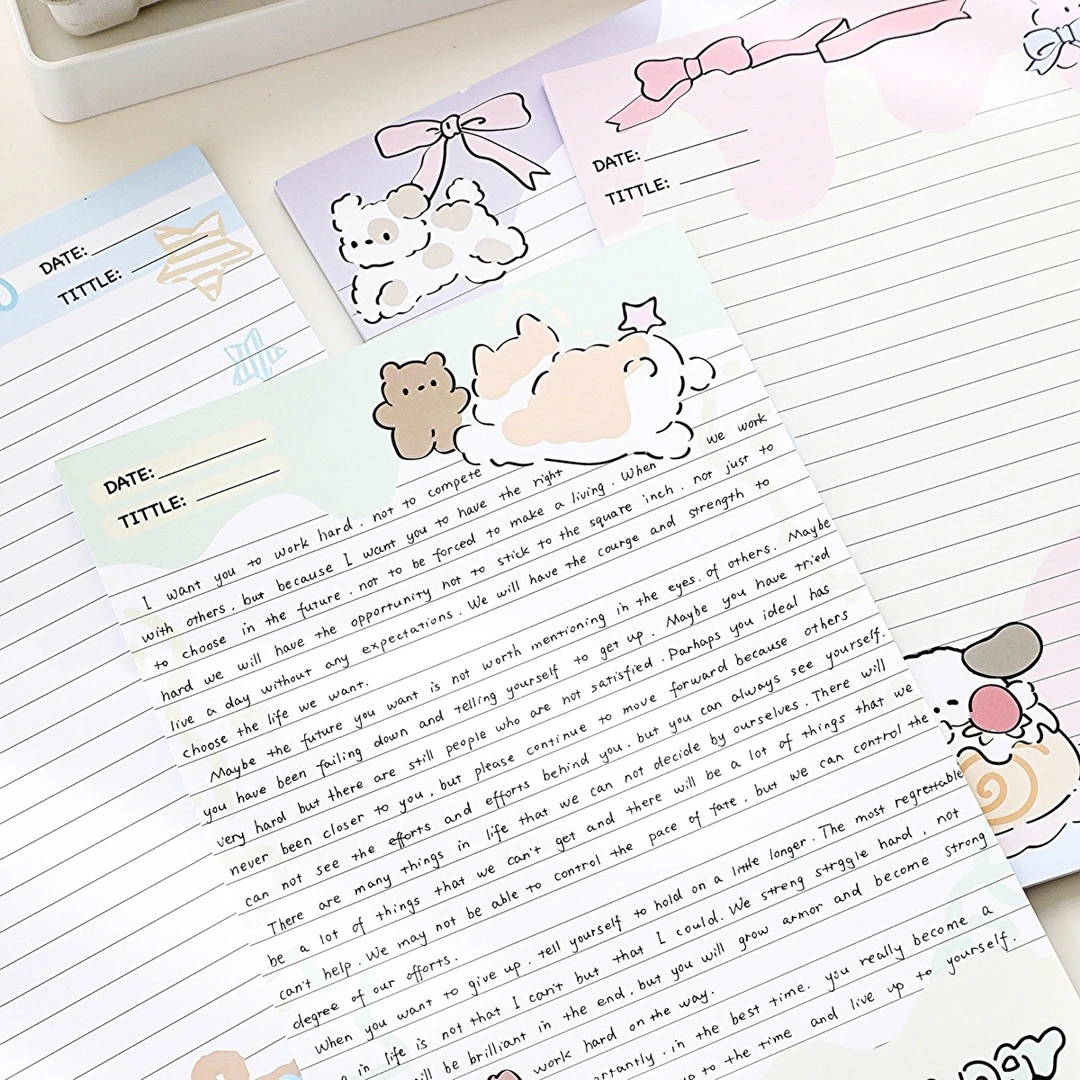 DATE:
TITTLE:
DATE:
TITTLE:
DATE:
TITTLE:
I want you to work hard. not to compete
with others, but because I want you to have the right
to choose in the future. not to be forced to make a living. When we work
hard we will have the opportunity not to stick to the square inch. not just to
live a day without any expectations. We will have the courge and strength to
choose the life we want.
Maybe the future you want is not worth mentioning in the eyes. of others. Maybe
you have been failing down and telling yourself to get up. Maybe you have tried
very hard but there are still people who are not satisfied. Parhaps you ideal has
never been closer to you, but please continue to move forward because others
can not see the efforts and efforts behind you. but you can always see yourself.
There are many things in life that we can not decide by ourselves. There will
be a lot of things that we can't get and there will be a lot of things that we
can't help. We may not be able to control the pace of fate. but we can control the
degree of our efforts.
When you want to give up. tell yourself to hold on a little longer. The most regrettable
in life is not that I can't but that I could. We streng strggle hard, not
be brilliant in the end. but you will grow armor and become strong
work hard on the way.
in the best time. you really become a
to the time and live up to yourself.